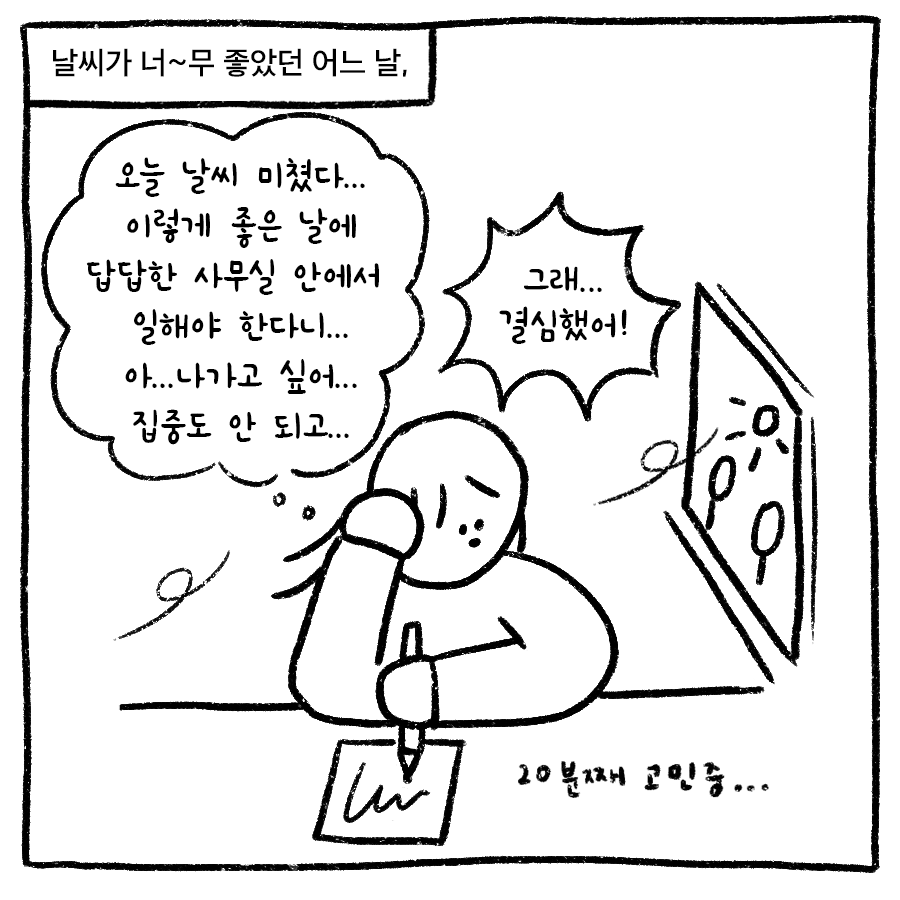 날씨가 너~무 좋았던 어느 날,
오늘 날씨 미쳤다...
이렇게 좋은 날에
답답한 사무실 안에서
일해야 한다니...
아...나가고 싶어...
집중도 안 되고...
그래...
결심했어!
20분째 고민중...